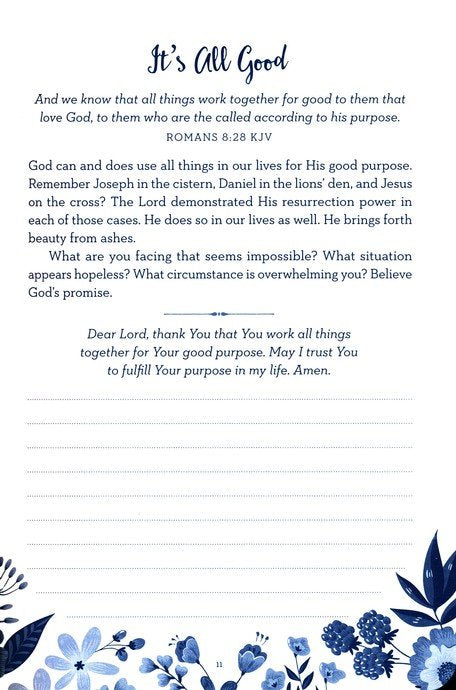 It's All Good
And we know that all things work together for good to them that
love God, to them who are the called according to his purpose.
ROMANS 8:28 KJV
God can and does use all things in our lives for His good purpose.
Remember Joseph in the cistern, Daniel in the lions' den, and Jesus
on the cross? The Lord demonstrated His resurrection power in
each of those cases. He does so in our lives as well. He brings forth
beauty from ashes.
What are you facing that seems impossible? What situation
appears hopeless? What circumstance is overwhelming you? Believe
God's promise.
Dear Lord, thank You that You work all things
together for Your good purpose. May I trust You
to fulfill Your purpose in my life. Amen.
11